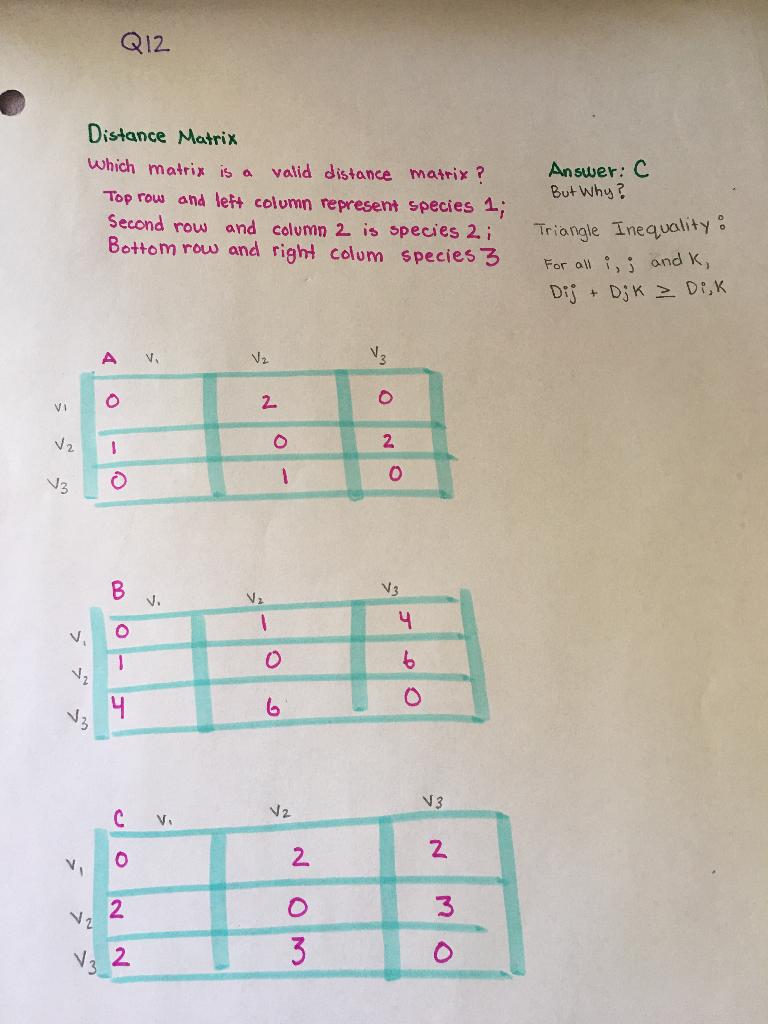 Q12
Distance Matrix
Which matrix is a valid distance matrix?
Top row and left column represent species 1;
Second row and column 2 is species 2;
Bottom row and right colum species 3
Answer: C
But Why?
Triangle Inequality:
For all i, j and K,
Dij + DjK ≥ Di,K
A V1 V2 V3
V1 0 2 0
V2 1 0 2
V3 0 1 0
B V1 V2 V3
V1 0 1 4
V2 1 0 6
V3 4 6 0
C V1 V2 V3
V1 0 2 2
V2 2 0 3
V3 2 3 0